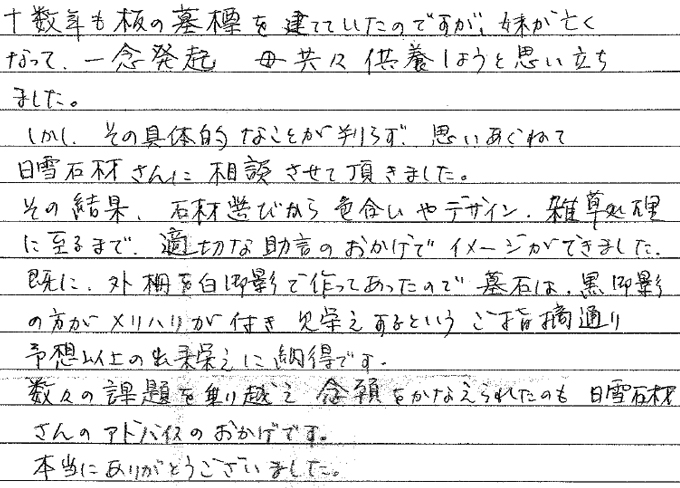 十数年も板の墓標を建てていたのですが、妹が亡く
なって、一念発起 母共々供養しようと思い立ち
ました。
しかし、その具体的なことが判らず、思いあぐねて
日雪石材さんに相談させて頂きました。
その結果、石材選びから色合いやデザイン、雑草処理
に至るまで、適切な助言のおかげでイメージができました。
既に、外柵を白御影で作ってあったので墓石は、黒御影
の方がメリハリが付き 見栄えするという ご指摘通り
予想以上の出来栄えに納得です。
数々の課題を乗り越え 念願をかなえられたのも 日雪石材
さんのアドバイスのおかげです。
本当にありがとうございました。